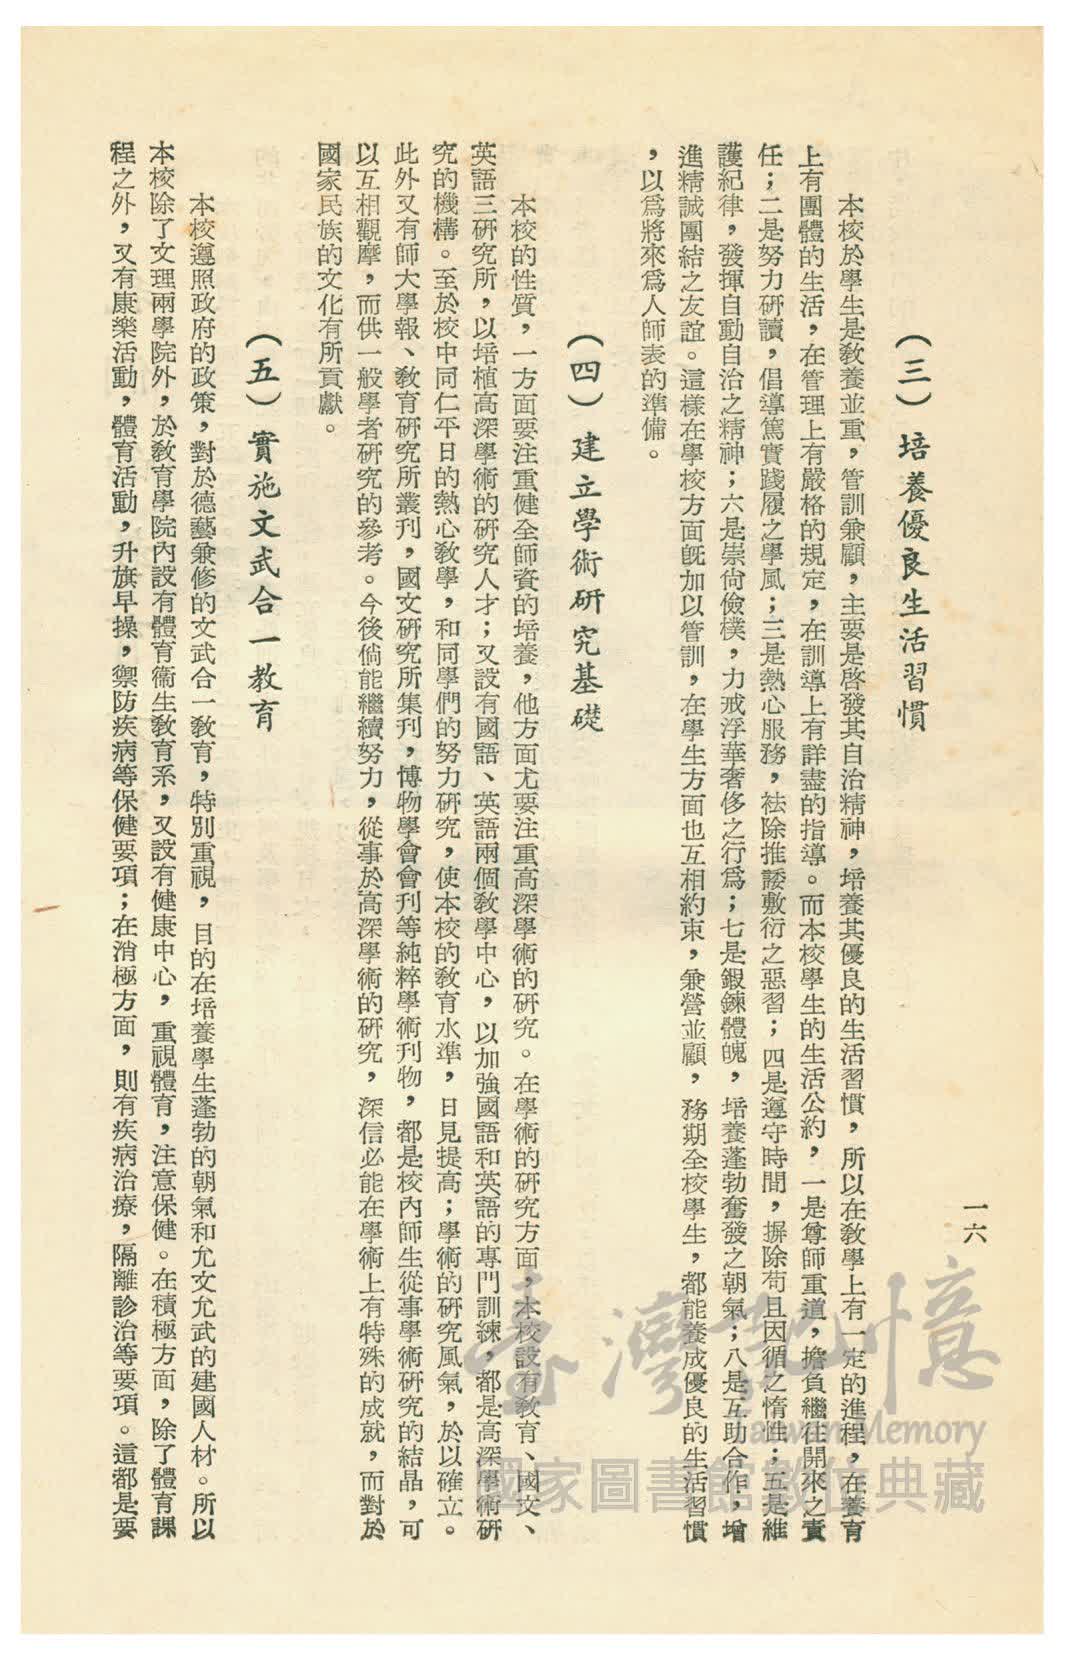 一六
（三）培養優良生活習慣
本校於學生是敎養並重，管訓兼顧，主要是啓發其自治精神，培養其優良的生活習慣，所以在敎學上有一定的進程，在養育
上有團體的生活，在管理上有嚴格的規定，在訓導上有詳盡的指導。而本校學生的生活公約，一是尊師重道，擔負繼往開來之責
任；二是努力硏讀，倡導篤實踐履之學風；三是熱心服務，袪除推諉敷衍之惡習；四是遵守時間，摒除苟且因循之惰性；五是維
護紀律，發揮自動自治之精神；六是崇尙儉樸，力戒浮華奢侈之行爲；七是鍛鍊體魄，培養蓬勃奮發之朝氣；八是互助合作，增
進精誠團結之友誼。這樣在學校方面旣加以管訓，在學生方面也互相約束，兼營並顧，務期全校學生，都能養成優良的生活習慣
，以爲將來爲人師表的準備。
（四）建立學術硏究基礎
本校的性質，一方面要注重健全師資的培養，他方面尤要注重高深學術的硏究。在學術的硏究方面，本校設有敎育、國文、
英語三硏究所，以培植高深學術的硏究人才；又設有國語、英語兩個敎學中心，以加強國語和英語的專門訓練，都是高深學術硏
究的機構。至於校中同仁平日的熱心敎學，和同學們的努力硏究，使本校的敎育水準，日見提高；學術的硏究風氣，於以確立。
此外又有師大學報、敎育硏究所叢刊，國文硏究所集刊，博物學會會刊等純粹學術刊物，都是校內師生從事學術硏究的結晶，可
以互相觀摩，而供一般學者硏究的參考。今後倘能繼續努力，從事於高深學術的硏究，深信必能在學術上有特殊的成就，而對於
國家民族的文化有所貢獻。
（五）實施文武合一敎育
本校遵照政府的政策，對於德藝兼修的文武合一敎育，特別重視，目的在培養學生蓬勃的朝氣和允文允武的建國人材。所以
本校除了文理兩學院外，於敎育學院內設有體育衞生敎育系，又設有健康中心，重視體育，注意保健。在積極方面，除了體育課
程之外，又有康樂活動，體育活動，升旗早操，禦防疾病等保健要項；在消極方面，則有疾病治療，隔離診治等要項。這都是要
臺灣記憶
Taiwan Memory
國家圖書館數位典藏